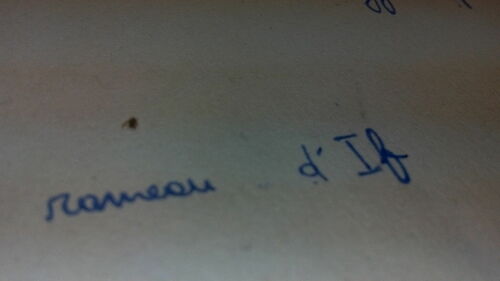 rameau d'If